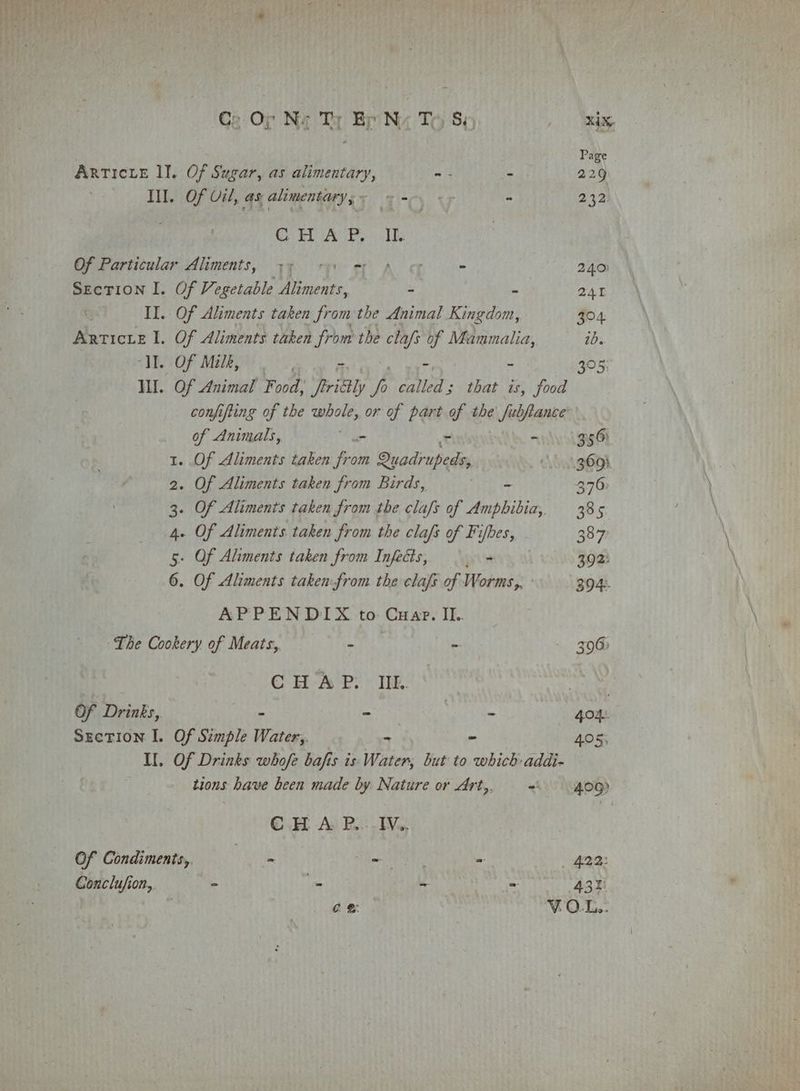 C O N T E N T S. xix
Page
ARTICLE II. Of Sugar, as alimentary, - - - 229
III. Of Oil, as alimentary, - - 232
C H A P. II.
Of Particular Aliments, - - 240
SECTION I. Of Vegetable Aliments, - - 241
II. Of Aliments taken from the Animal Kingdom, 304
ARTICLE I. Of Aliments taken from the claſs of Mammalia, ib.
II. Of Milk, - - - 305
III. Of Animal Food, ſtrictly ſo called; that is, food
conſiſting of the whole, or of part of the ſubſtance
of Animals, - - - 356
1. Of Aliments taken from Quadrupeds, 369
2. Of Aliments taken from Birds, - 376
3. Of Aliments taken from the claſs of Amphibia, 385
4. Of Aliments taken from the claſs of Fiſhes, 387
5. Of Aliments taken from Inſects, - 392
6. Of Aliments taken from the claſs of Worms, 394
APPENDIX to CHAP. II.
The Cookery of Meats, - - 396
C H A P. III.
Of Drinks, - - - 404
SECTION I. Of Simple Water, - - 405
II. Of Drinks whoſe baſis is Water, but to which addi-
tions have been made by Nature or Art, - 409
C H A P. IV.
Of Condiments, - - - 422
Concluſion, - - - - 431
c 2 V O L.